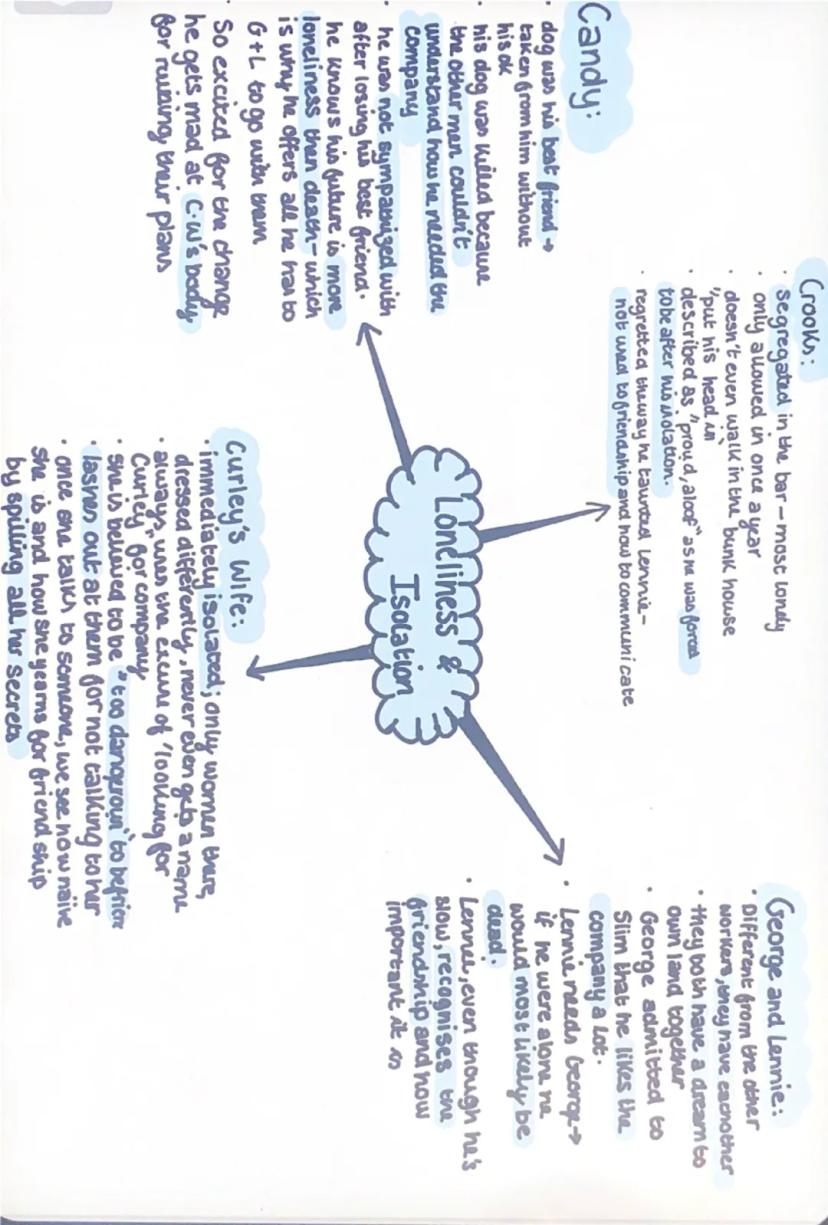 Crooks:
· segregated in the bar – most londy
· only allowed in once a year
· doesn't even walk in the bunk house
"put his head in
· described as "proud, aloof" as he was forced
to be after his isolation.
· regretted the way he taunted Lennie –
not used to friendship and how to communicate
George and Lennie:
· Different from the other
workers, they have eachother
· they both have a dream to
own land together
· George admitted to
Slim that he likes the
company a lot.
· Lennie needs George →
if he were alone he
would most likely be
dead.
· Lennie, even though he's
slow, recognises the
friendship and how
important it is
Loneliness &
Isolation
Candy:
· dog was his best friend →
taken from him without
his ok
· his dog was killed because
the other men couldn't
understand how he needed the
company
· he was not sympathized with
after losing his best friend.
· he knows his future is more
loneliness then death – which
is why he offers all he has to
G+L to go with them
· So excited for the change
he gets mad at C.W's body,
for ruining their plans
Curley's Wife:
· immediately isolated; only women there,
dressed differently, never even gets a name
· always "has the excuse of 'looking for
Curley' for company
· she is believed to be "too dangerous" to befriend
· lashes out at them for not talking to her
· once she talks to someone, we see how naïve
she is and how she yearns for friend ship
by spilling all her secrets